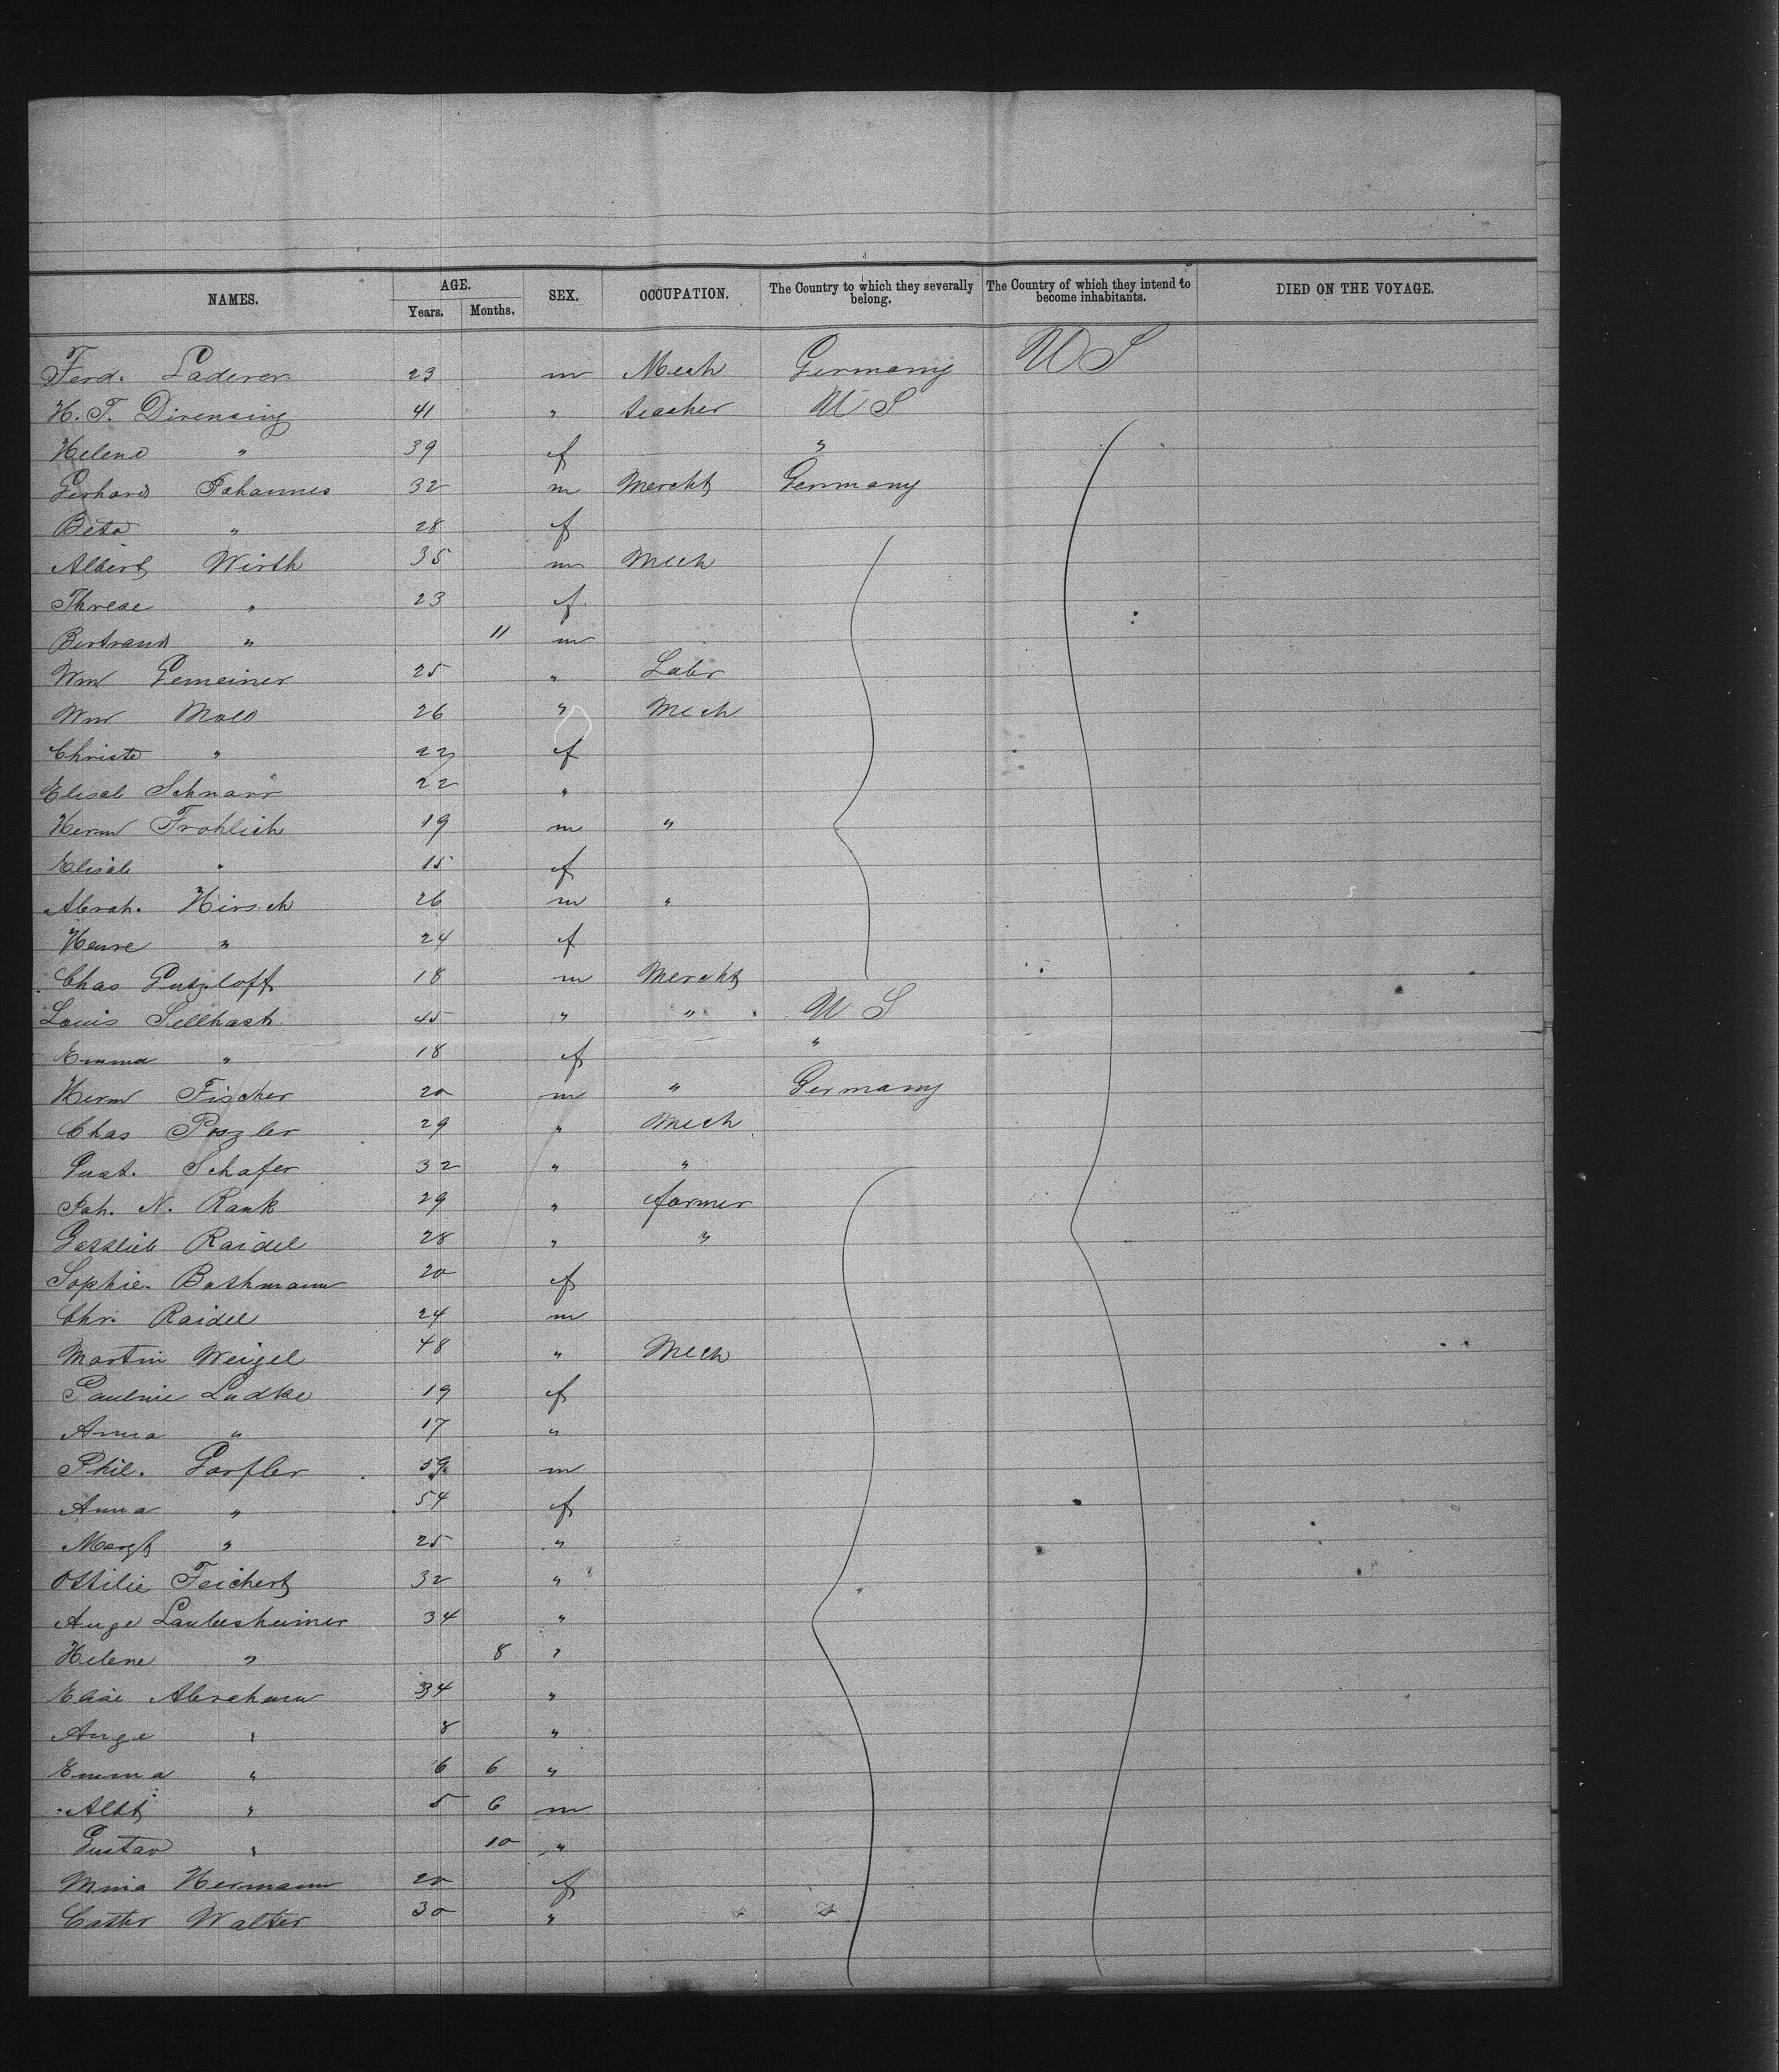 NAMES. AGE. SEX. OCCUPATION. The Country to which they severally belong. The Country of which they intend to become inhabitants. DIED ON THE VOYAGE.
Years. Months.
Ferd. Laderer 23 m Mech Germany U S
H. T. Dirensing 41 " teacher U S
Helene " 39 f "
Gerhard Johannes 32 m Mercht Germany
Beta " 28 f
Albert Wirth 35 m Mech
Threse " 23 f
Bertrand " 11 m
Wm Gemeiner 25 " Labr
Wm 26 " Mech
Christe " 22 f
Elisab Schnarr 22 "
Herm Frohlich 19 m "
Elisab " 15 f
Abrah. Hirsch 26 m "
" 24 f
Chas Gutzloff 18 m Mercht
Louis Sellhast 45 " " U S
Emma " 18 f "
Herm Fischer 20 m " Germany
Chas 29 " Mech
Gust. Schafer 32 " "
Joh. N. Rank 29 " farmer
Gottlieb Raidel 28 " "
Sophie Bathmann 20 f
Chr. Raidel 24 m
Martin Weigel 48 " Mech
Pauline Ludke 19 f
Anna " 17 "
Phil. 59 m
Anna " 54 f
Margt " 25 "
Ottilie Teichert 32 "
Auge Laubesheimer 34 "
Helene " 8 "
Elise 34 "
Auge " 8 "
Emma " 6 6 "
Albt " 5 6 m
Gustav " 10 "
Mina Hermann 20 f
Walter 30 "